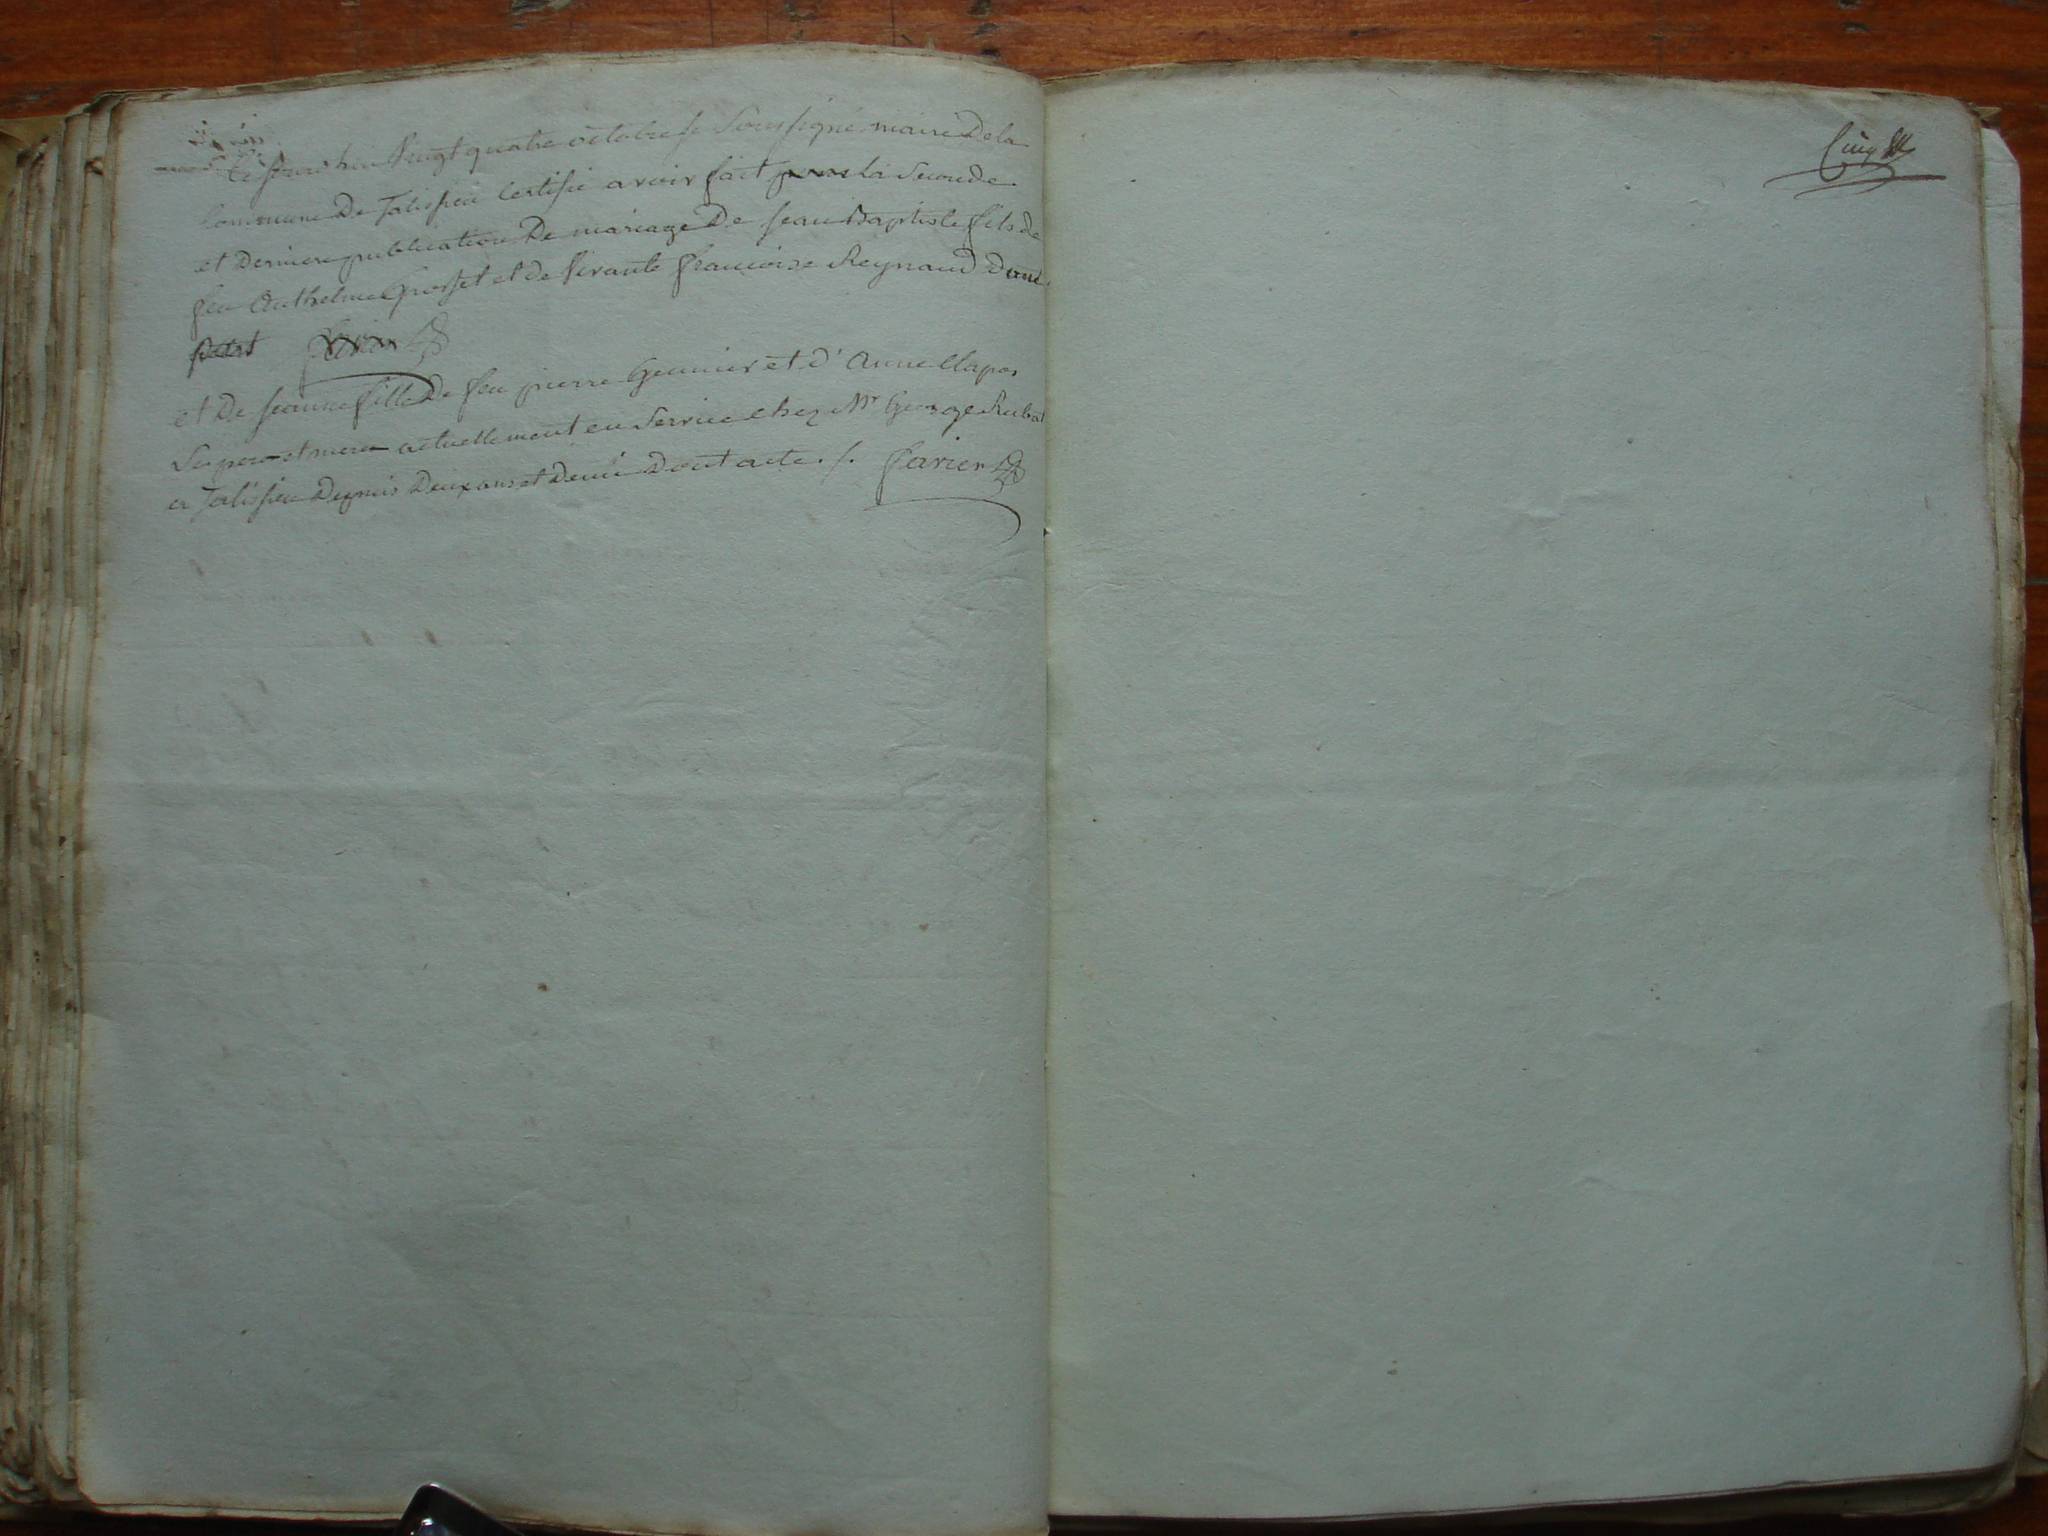 Ce jourdhui vingt quatre octobre je soussigné maire De la
Commune De Talissieu Certifie avoir fait la Seconde
et Derniere publication De mariage De jean Baptiste fils de
feu Anthelme Grosset et de vivante francoise Reynaud
favier
et De jeanne fille De feu pierre et d'Anne Clapas
Ses pere et mere actuellement en Service chez Mr George Rubat
a Talissieu Depuis Deux ans et Demi Dont acte ./. favier
Cinq